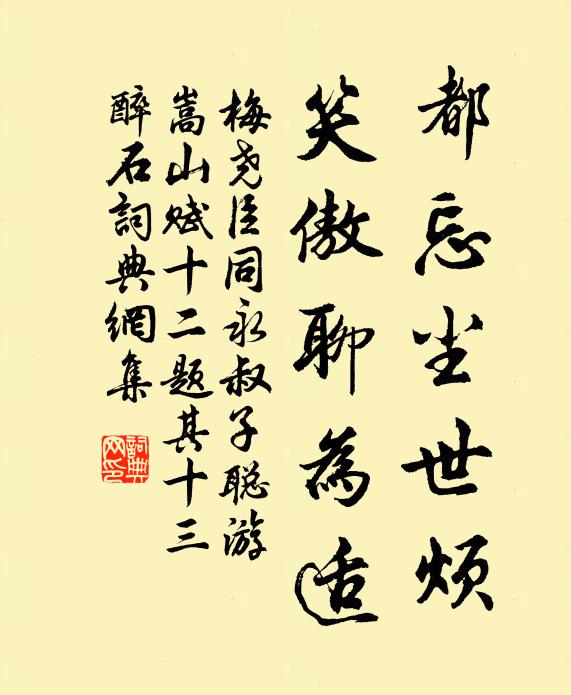 都忘尘世烦
笑傲聊為适
梅尧臣同永叔子聪游
嵩山赋十二题其十三
醉石詞典網集
詞典
网印